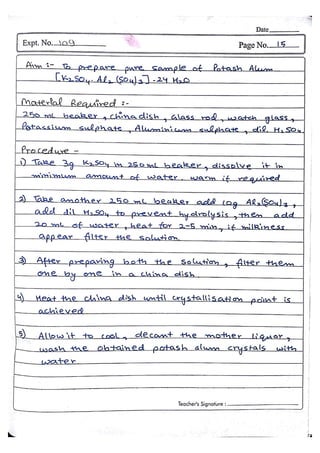 Date
Expt. No. 109
Page No. 15
Aim :- To prepare pure sample of Potash Alum
[K2SO4. Al2 (SO4)3] -24 H2O
Material Required :-
250 ml beaker, china dish, Glass rod, watch glass,
Potassium sulphate, Aluminium sulphate, dil. H2SO4.
Procedure -
1) Take 3g K2SO4 in 250 ml beaker, dissolve it in
minimum amount of water. warm if required
2) Take another 250 ml beaker add 10g Al2(SO4)3,
add dil H2SO4 to prevent hydrolysis, then add
20 ml of water, heat for 2-5 min, if milkiness
appear filter the solution.
3) After preparing both the solution, filter them
one by one in a china dish.
4) Heat the china dish until crystallisation point is
achieved
5) Allow it to cool, decant the mother liquor,
wash the obtained potash alum crystals with
water.
Teacher's Signature :